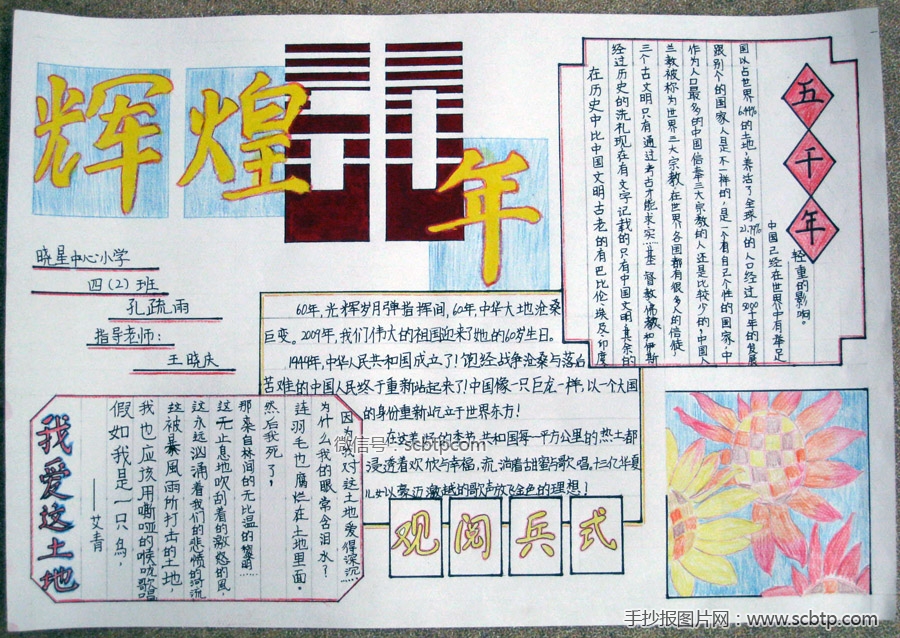 辉煌60年
晓星中心小学
四(2)班
孔疏雨
指导老师:
王晓庆
五千年
在历史中比中国文明古老的有巴比伦,埃及,印度
经过历史的洗礼现在有文字记载的只有中国文明,其余的
三个古文明只有通过考古才能求实…基督教佛教和伊斯
兰教被称为世界三大宗教,在世界各国都有很多人的信徒,
作为人口最多的中国信奉三大宗教的人还是比较少的,中国人
跟别个的国家人是不一样的,是一个有自己个性的国家,中
国以占世界6.44%的土地,养活了全球21.79%的人口经过5000千年的发展
中国已经在世界中有举足
轻重的影响。
60年,光辉岁月弹指挥间,60年,中华大地沧桑
巨变。2009年,我们伟大的祖国迎来了她的60岁生日。
1949年,中华人民共和国成立了!饱经战争沧桑与落后
苦难的中国人民终于重新站起来了!中国像一只巨龙一样,以一个大国
的身份重新屹立于世界东方!
在这 的季节,共和国每一平方公里的热土都
浸透着欢欣与幸福,流淌着甜蜜与歌唱,十三亿华夏
儿女以豪迈激越的歌声放飞金色的理想!
我爱这土地
——艾青
假如我是一只鸟,
我也应该用嘶哑的喉咙歌唱
这被暴风雨所打击的土地,
这永远汹涌着我们的悲愤的河流
这无止息地吹刮着的激怒的风,
那来自林间的无比温的黎明……
然后我死了,
连羽毛也腐烂在土地里面。
为什么我的眼常含泪水?
因为我对这土地爱得深沉……
观阅兵式
微信号:scbtp.com
手抄报图片网:www.scbtp.com